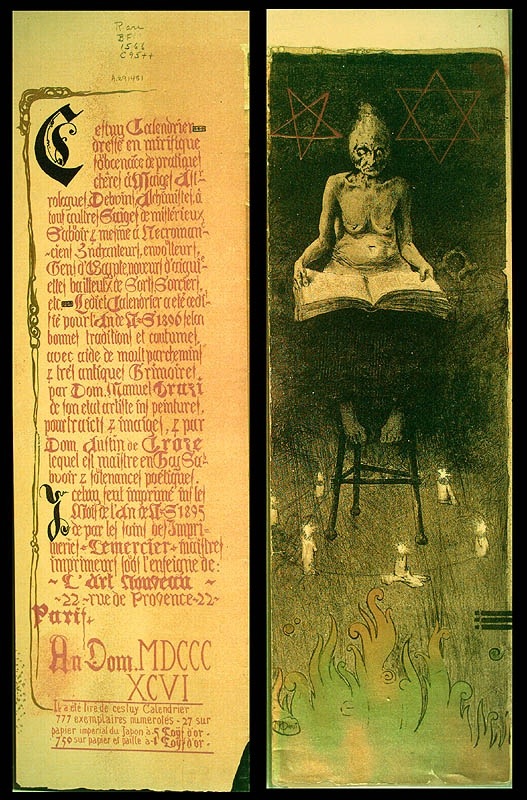 Rare
BF
1566
C95++
A.691451
Cestuy Calendrier
dresté en mirifique
& obcenaice de pratiques
chères à Maiges Ast-
rologues, Debvins, Alchimistes, à
tous aultres Saiges de mistérieux
Sabvoir & mesme à Necroman-
-ciens, Enchanteurs, envoilleurs,
Gens d'Egypte noueurs d'aiguil-
ettes bailleurs de Sorts Sorciers,
etc Ledict Calendrier a esté œdi-
sté pour l'An de N-S 1896 selon
bonnes traditions et coutumes,
avec aide de moult parchemins
& très antiques Grimoires,
par Dom. Manuel Orazi
de son estat artiste ins peintures,
pourtraicts & imaiges, & par
Dom Austin de Croze
lequel est maistre en Gay Sa-
bvoir & solennances poétiques.
Ycebuy feut imprimé ins les
Mois de l'An de N-S 1895
de par les soins des Impri-
meries Lemercier maistres
imprimeurs soubs l'enseigne de:
~ L'Art Nouveau ~
~ 22 ~ rue de Provence ~ 22 ~
Paris
An Dom. MDCCC
XCVI
Il a été tiré de cestuy Calendrier
777 exemplaires numérotés - 27 sur
papier impérial du Japon à 5 Loÿs d'or -
750 sur papier et taille à 1 Loÿs d'or -